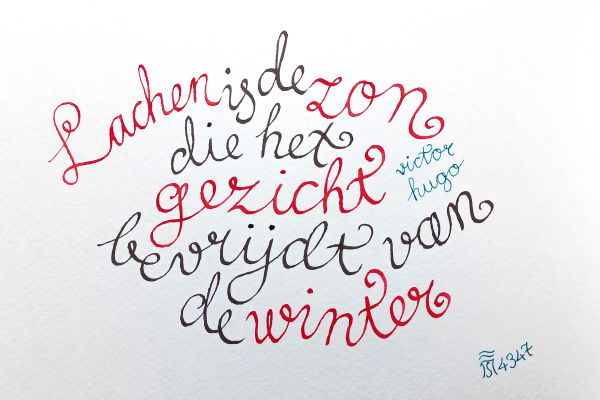 Lachen is de zon
die het
gezicht
bevrijdt van
de winter
victor
hugo
4347